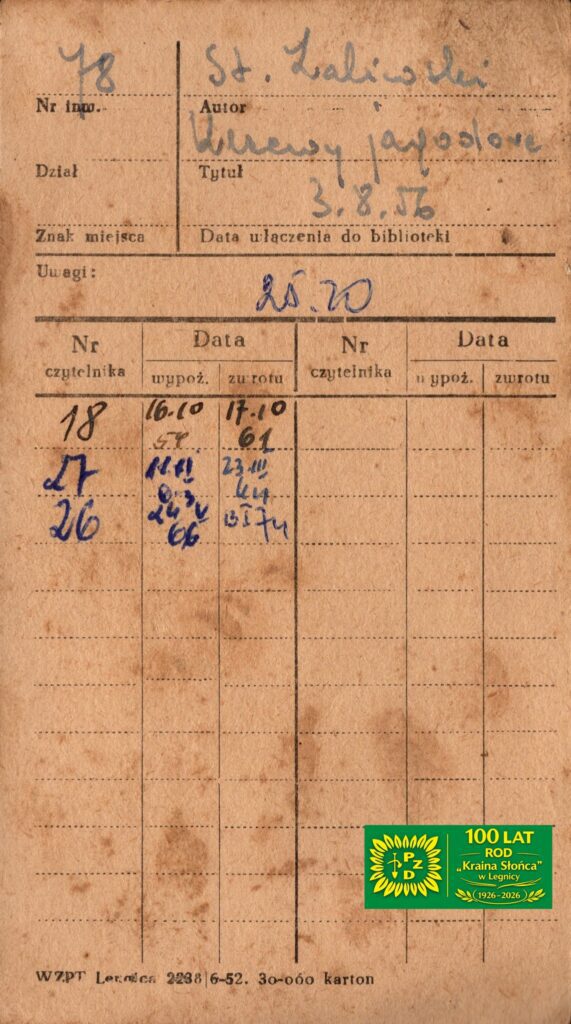 78 St. Zaliwski
Nr inw. Autor
Krzewy jagodowe
Dział Tytuł
3.8.56
Znak miejsca Data włączenia do biblioteki
Uwagi:
25.70
Nr Data Nr Data
czytelnika wypoż. zwrotu czytelnika wypoż. zwrotu
18 16.10 17.10
61
27 23 III
26 24 V
66 74
100 LAT
ROD
PZD „Kraina Słońca”
w Legnicy
1926-2026
WZPT Legnica 2238 6-52. 30-000 karton